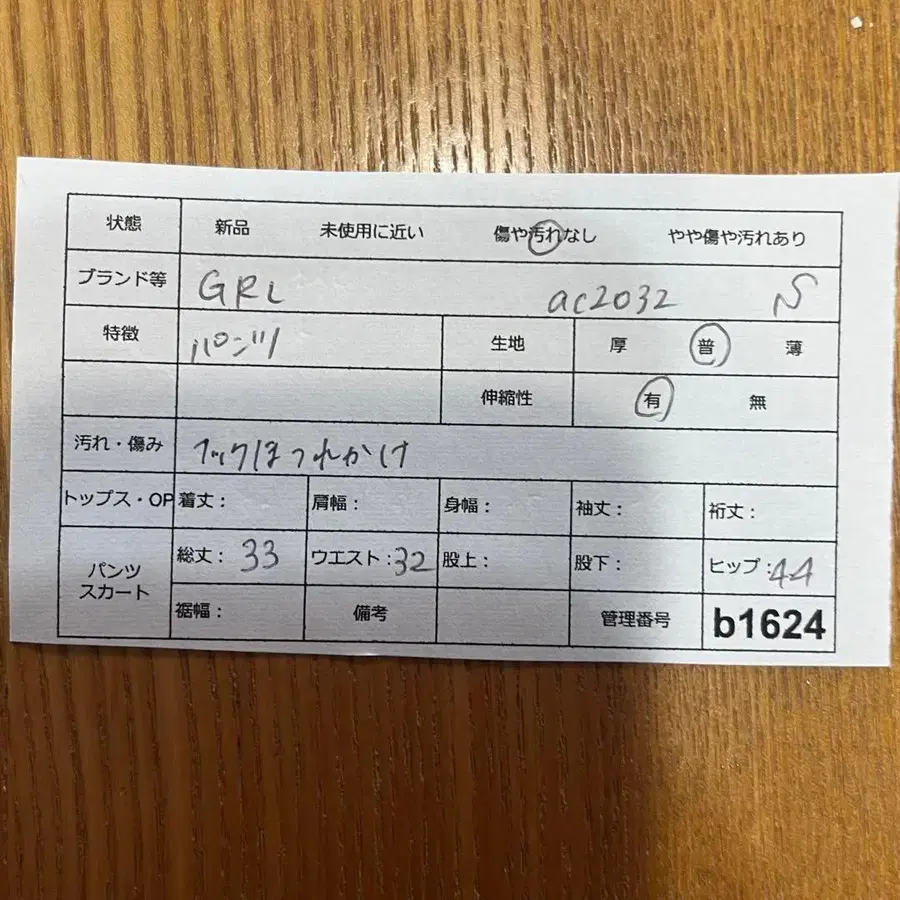 状態 新品 未使用に近い 傷や汚れなし やや傷や汚れあり
ブランド等 GRL ac2032 S
特徴 パンツ 生地 厚 普 薄
伸縮性 有 無
汚れ・傷み フックほつれかけ
トップス・OP 着丈: 肩幅: 身幅: 袖丈: 裄丈:
パンツ スカート 総丈: 33 ウエスト:32 股上: 股下: ヒップ:44
裾幅: 備考 管理番号 b1624